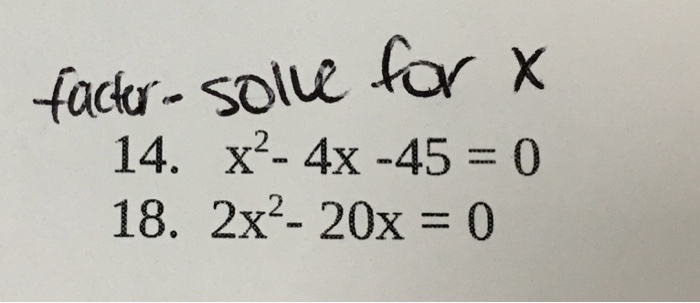 factor - solve for x
14. x²- 4x -45 = 0
18. 2x²- 20x = 0